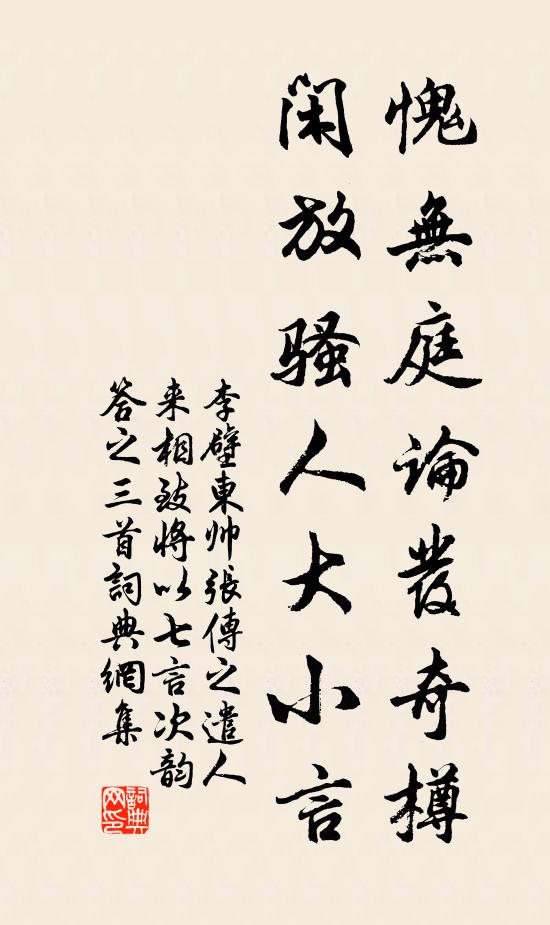 愧無庭論發奇樽
闲放骚人大小言
李壁東帅張傳之遣人
来相致將以七言次韵
答之三首詞典網集
詞典网印